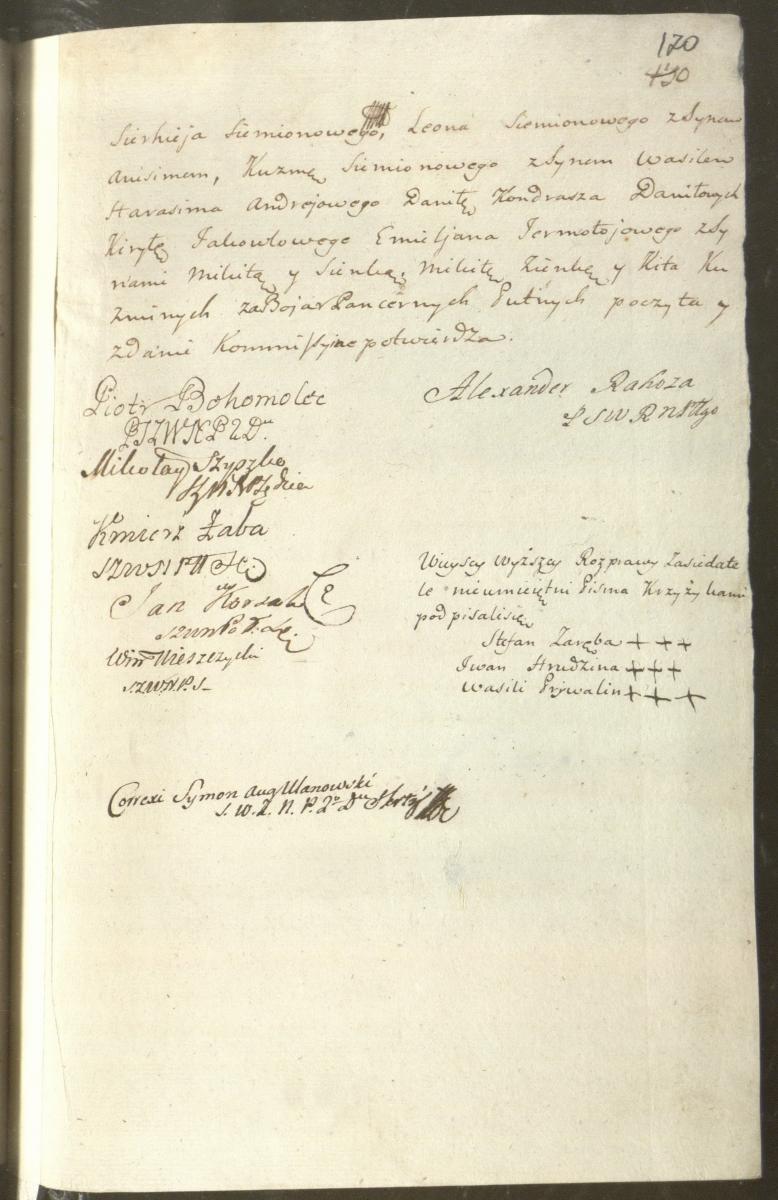 170
Sierhieja Siemionowego, Leona Siemionowego z Synem
Anisimem, Kuzmę Siemionowego z Synem Wasilem
Harasima Andrejowego Daniłę Kondrasza Daniłowych
Kiryłę Jakowlowego Emieljana Jermołojowego z Sy
nami Mikitą y Sienką, Mikitę, Zienkę y Kita Ku
zminych za Bojar Pancernych Putnych poczyta y
zdanie Kommissyine potwierdza.
Piotr Bohomolec
P.Z.W.N.P. 2 Du.
Alexander Rahoza
P S W R N Płgo
Mikołay Szyszko
Kmierz Żaba
Jan Korsak
Win Wieszczycki
S.Z.W.N.P.S
Wwyscy Wyższey Rozprawy Zasiedate
le nieumieiętni Pisma Krzyżykami
podpisalisię
Stefan Zaręba + + +
Jwan Hrudzina + + +
Wasili Prywalin + + +
Correxi Symon Aug Ulanowski
S. W. Z. N. P. 2o Du